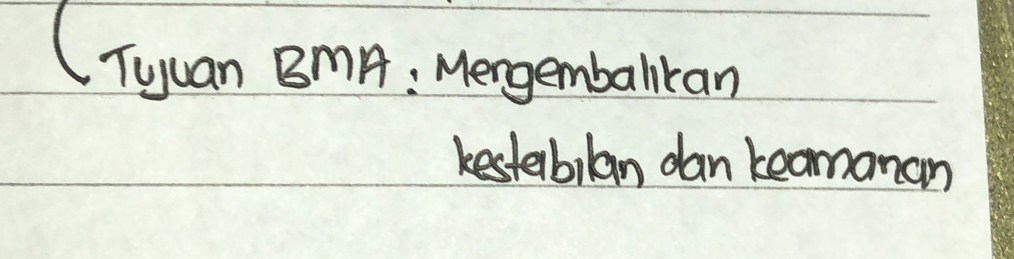 Tujuan BMA : Mengembalikan
kestabilan dan keamanan